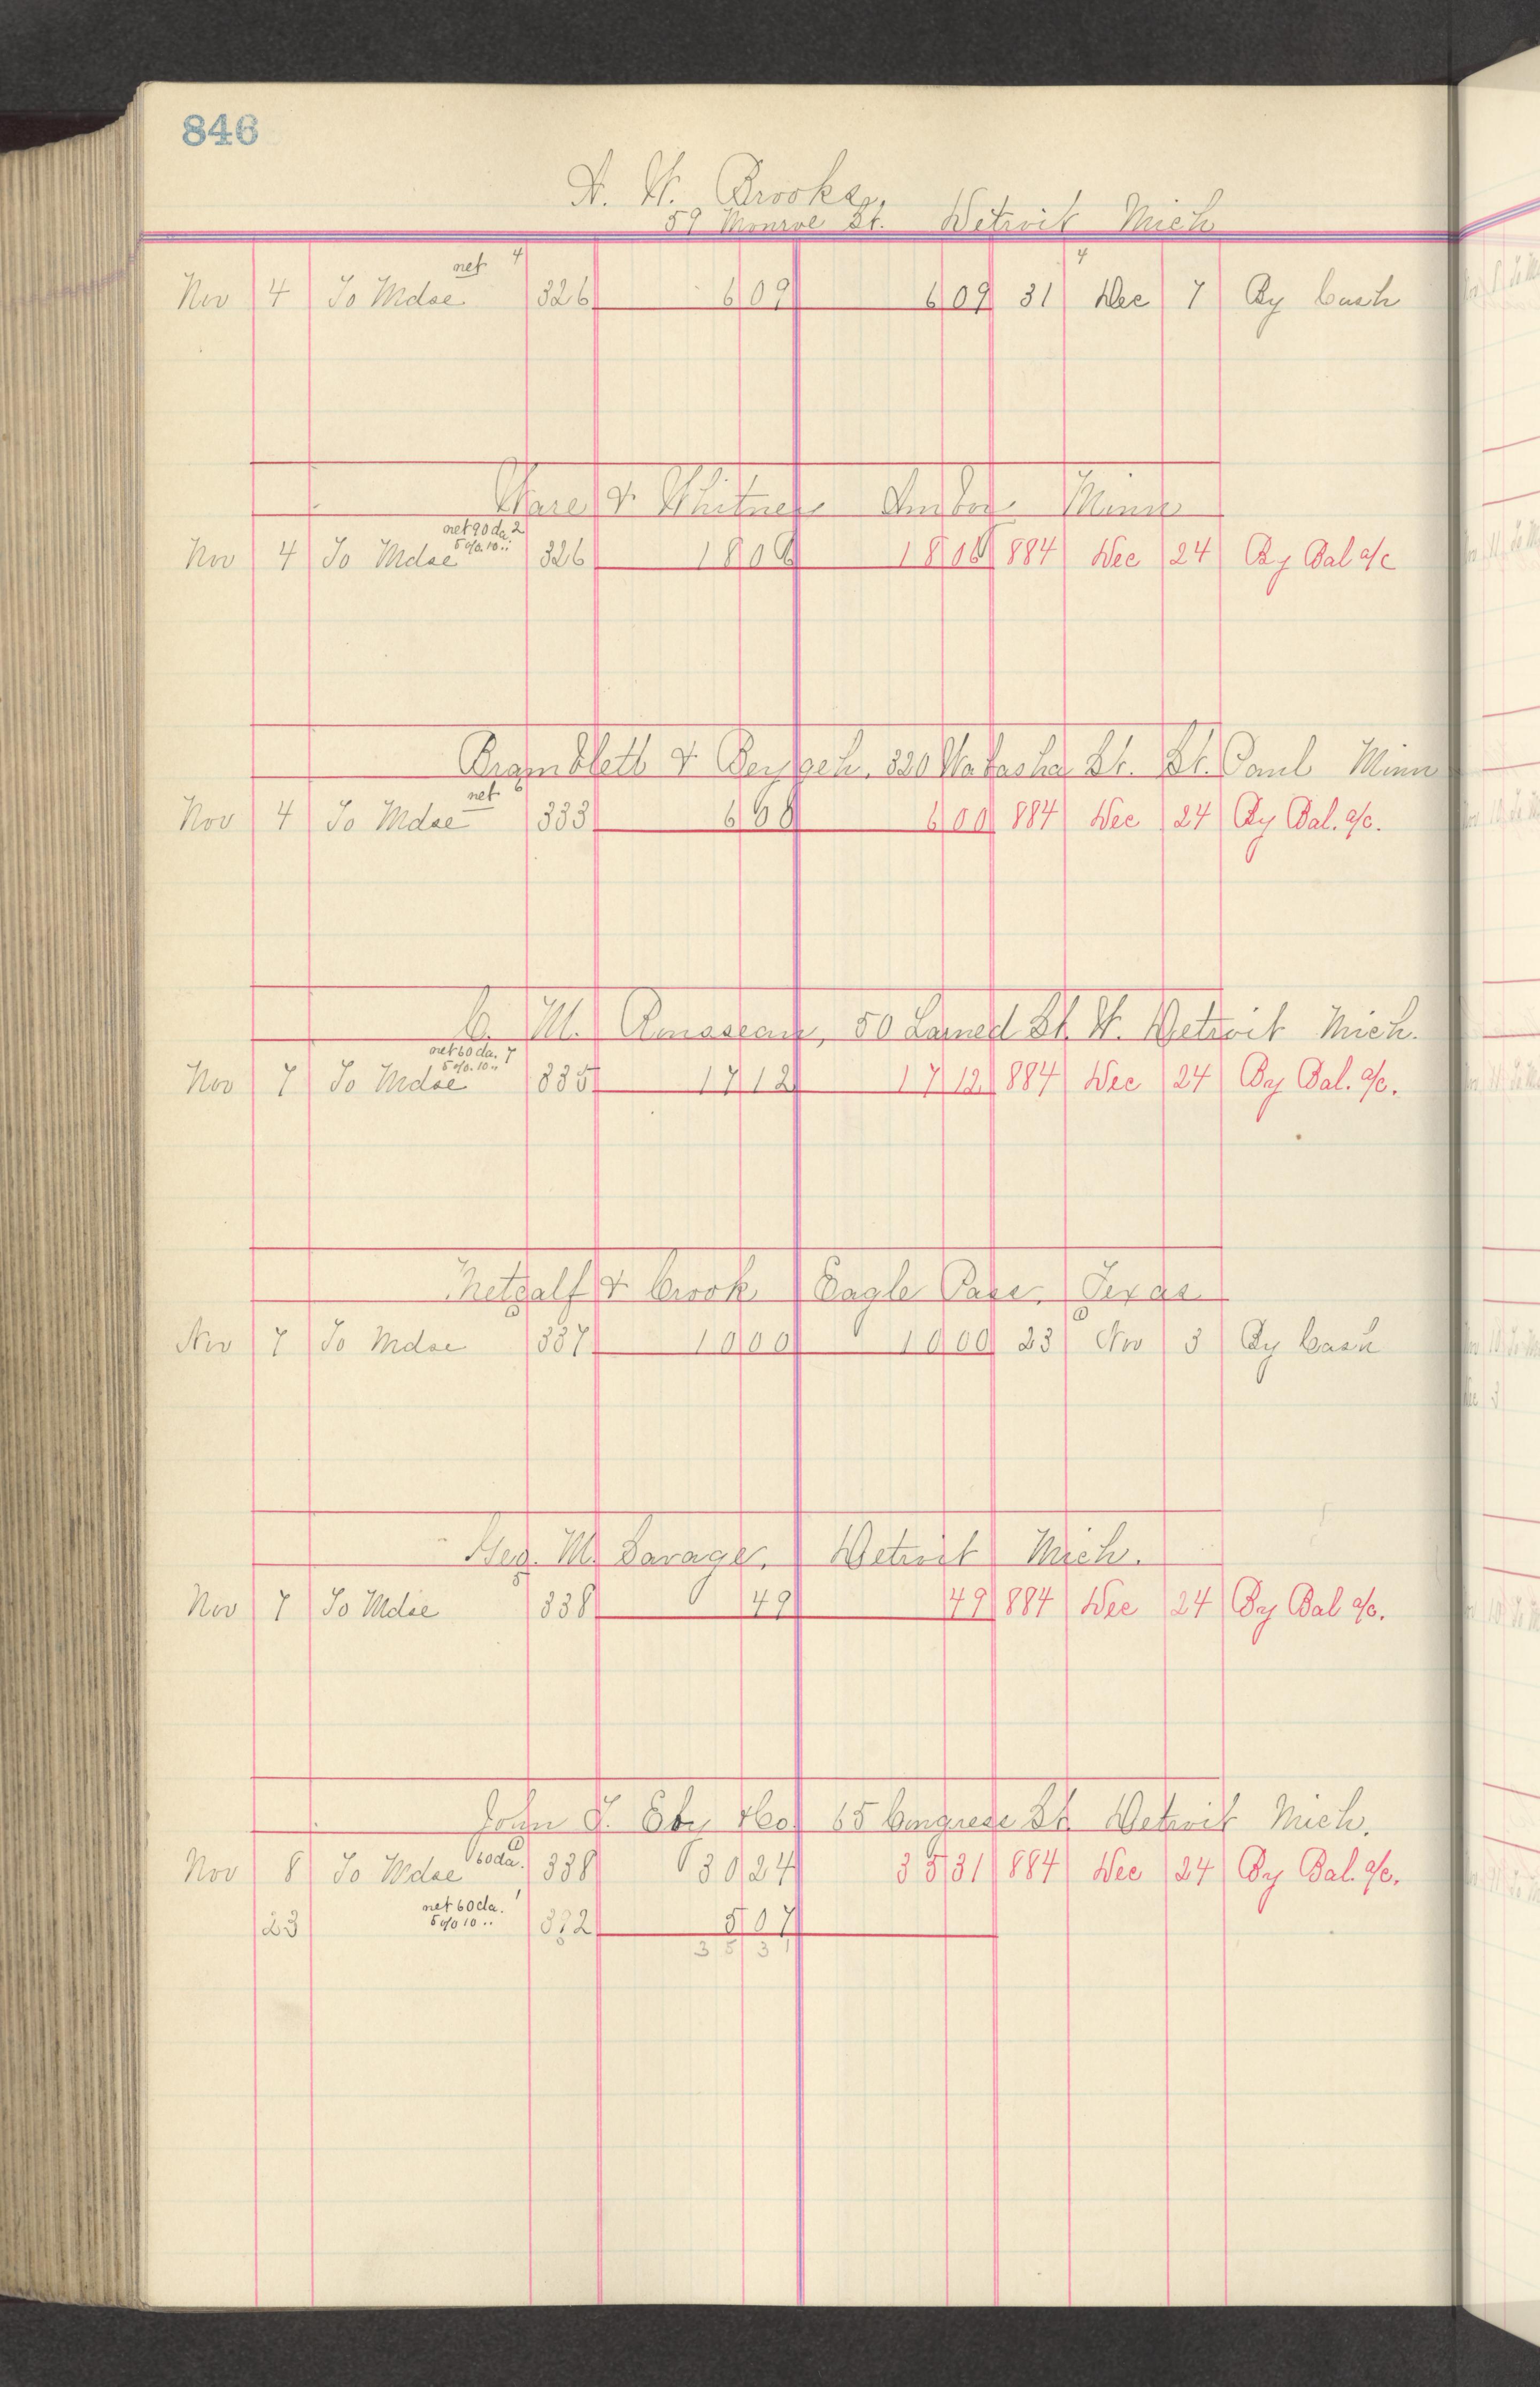 846
A. W. Brooks,
59 Monroe St. Detroit Mich
net 4 4
Nov 4 To Mdse 326 6 09 6 09 31 Dec 7 By Cash
Ware & Whitney Minn
net 90 da 2
5% 10 ..
Nov 4 To Mdse 326 18 08 18 08 884 Dec 24 By Bal a/c
Bramblett & 320 Wabasha St. St. Paul Minn
net 6
Nov 4 To Mdse 333 6 00 6 00 884 Dec 24 By Bal. a/c.
C. M. Rousseau, 50 Larned St. W. Detroit Mich.
net 60 da. 7
5% 10 ..
Nov 7 To Mdse 335 17 12 17 12 884 Dec 24 By Bal. a/c.
Metcalf & Crook Eagle Pass, Texas
Nov 7 To Mdse 337 10 00 10 00 23 Nov 3 By Cash
Geo. M. Savage, Detroit Mich.
Nov 7 To Mdse 338 49 49 884 Dec 24 By Bal a/c.
John J. Eby & Co. 65 Congress St Detroit Mich.
60 da.
Nov 8 To Mdse 338 30 24 35 31 884 Dec 24 By Bal. a/c.
net 60 da. 1
5% 10 ..
23 372 5 07
35 31